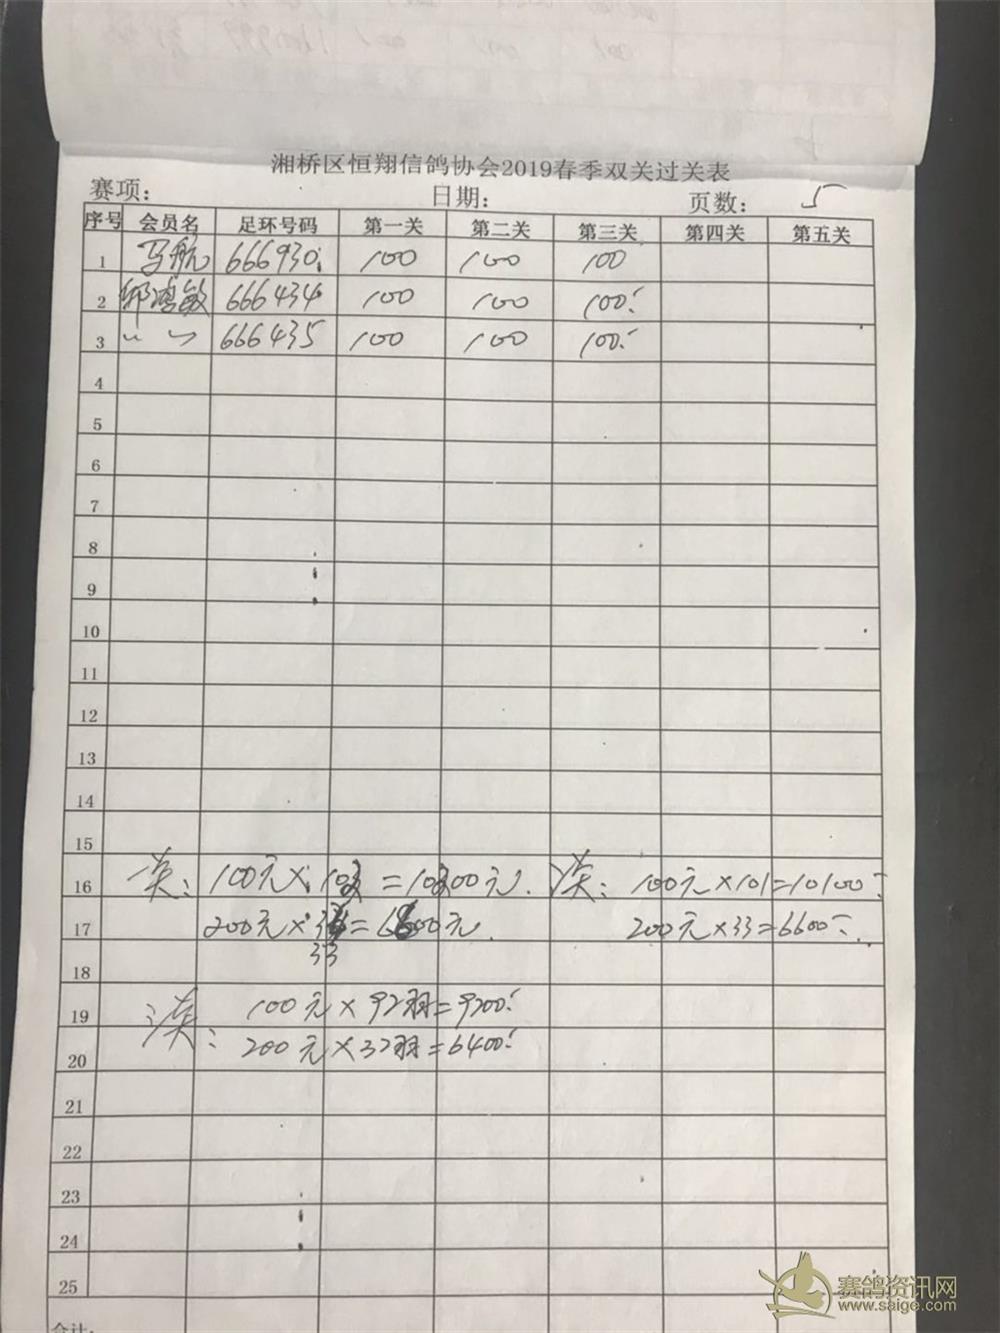 湘桥区恒翔信鸽协会2019春季双关过关表
赛项： 日期： 页数： 5
序号 会员名 足环号码 第一关 第二关 第三关 第四关 第五关
1 马航 666930 100 100 100
2 郑鸿敏 666434 100 100 100
3 〃 〃 666435 100 100 100
4
5
6
7
8
9
10
11
12
13
14
15
16 一关： 100元× = 00元. 二关： 100元×101=10100
17 200元× = 00元. 200元×33=6600
33
18
19 三关： 100元×92羽=9200
20 200元×32羽=6400
21
22
23
24
25
合计：
赛鸽资讯网
www.saige.com